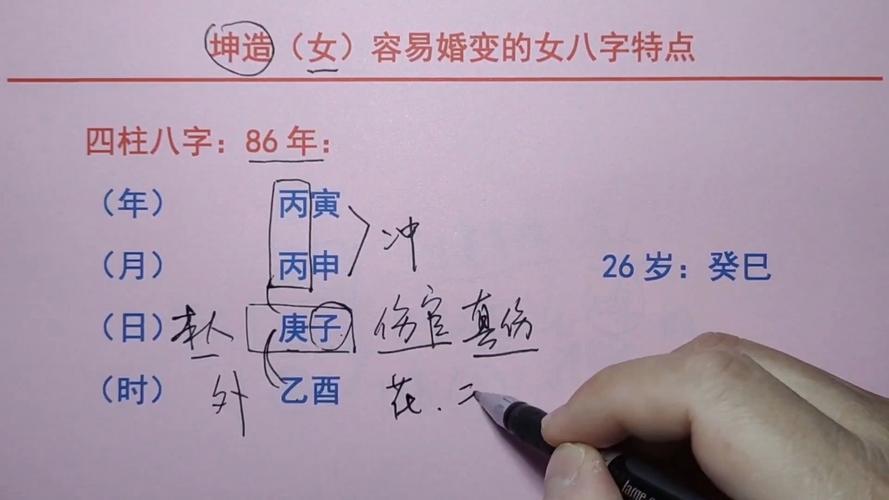 坤造（女）容易婚变的女八字特点
四柱八字：86年：
（年） 丙寅
冲
（月） 丙申 26岁：癸巳
（日）本人 庚子 伤官 真伤
（时） 外 乙酉 花.
large